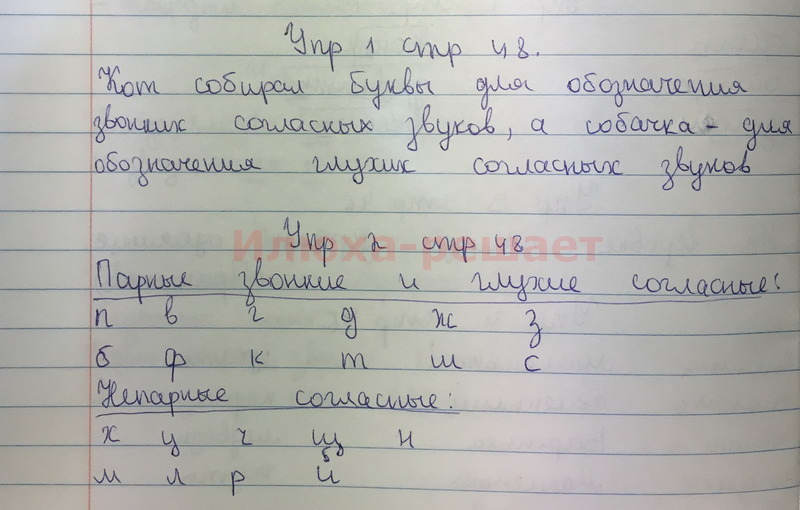 Упр 1 стр 48.
Кот собирал буквы для обозначения
звонких согласных звуков, а собачка - для
обозначения глухих согласных звуков
Упр 2 стр 48
Илюха-решает
Парные звонкие и глухие согласные:
п в г д ж з
б ф к т ш с
Непарные согласные:
х ц ч щ н
м л р й